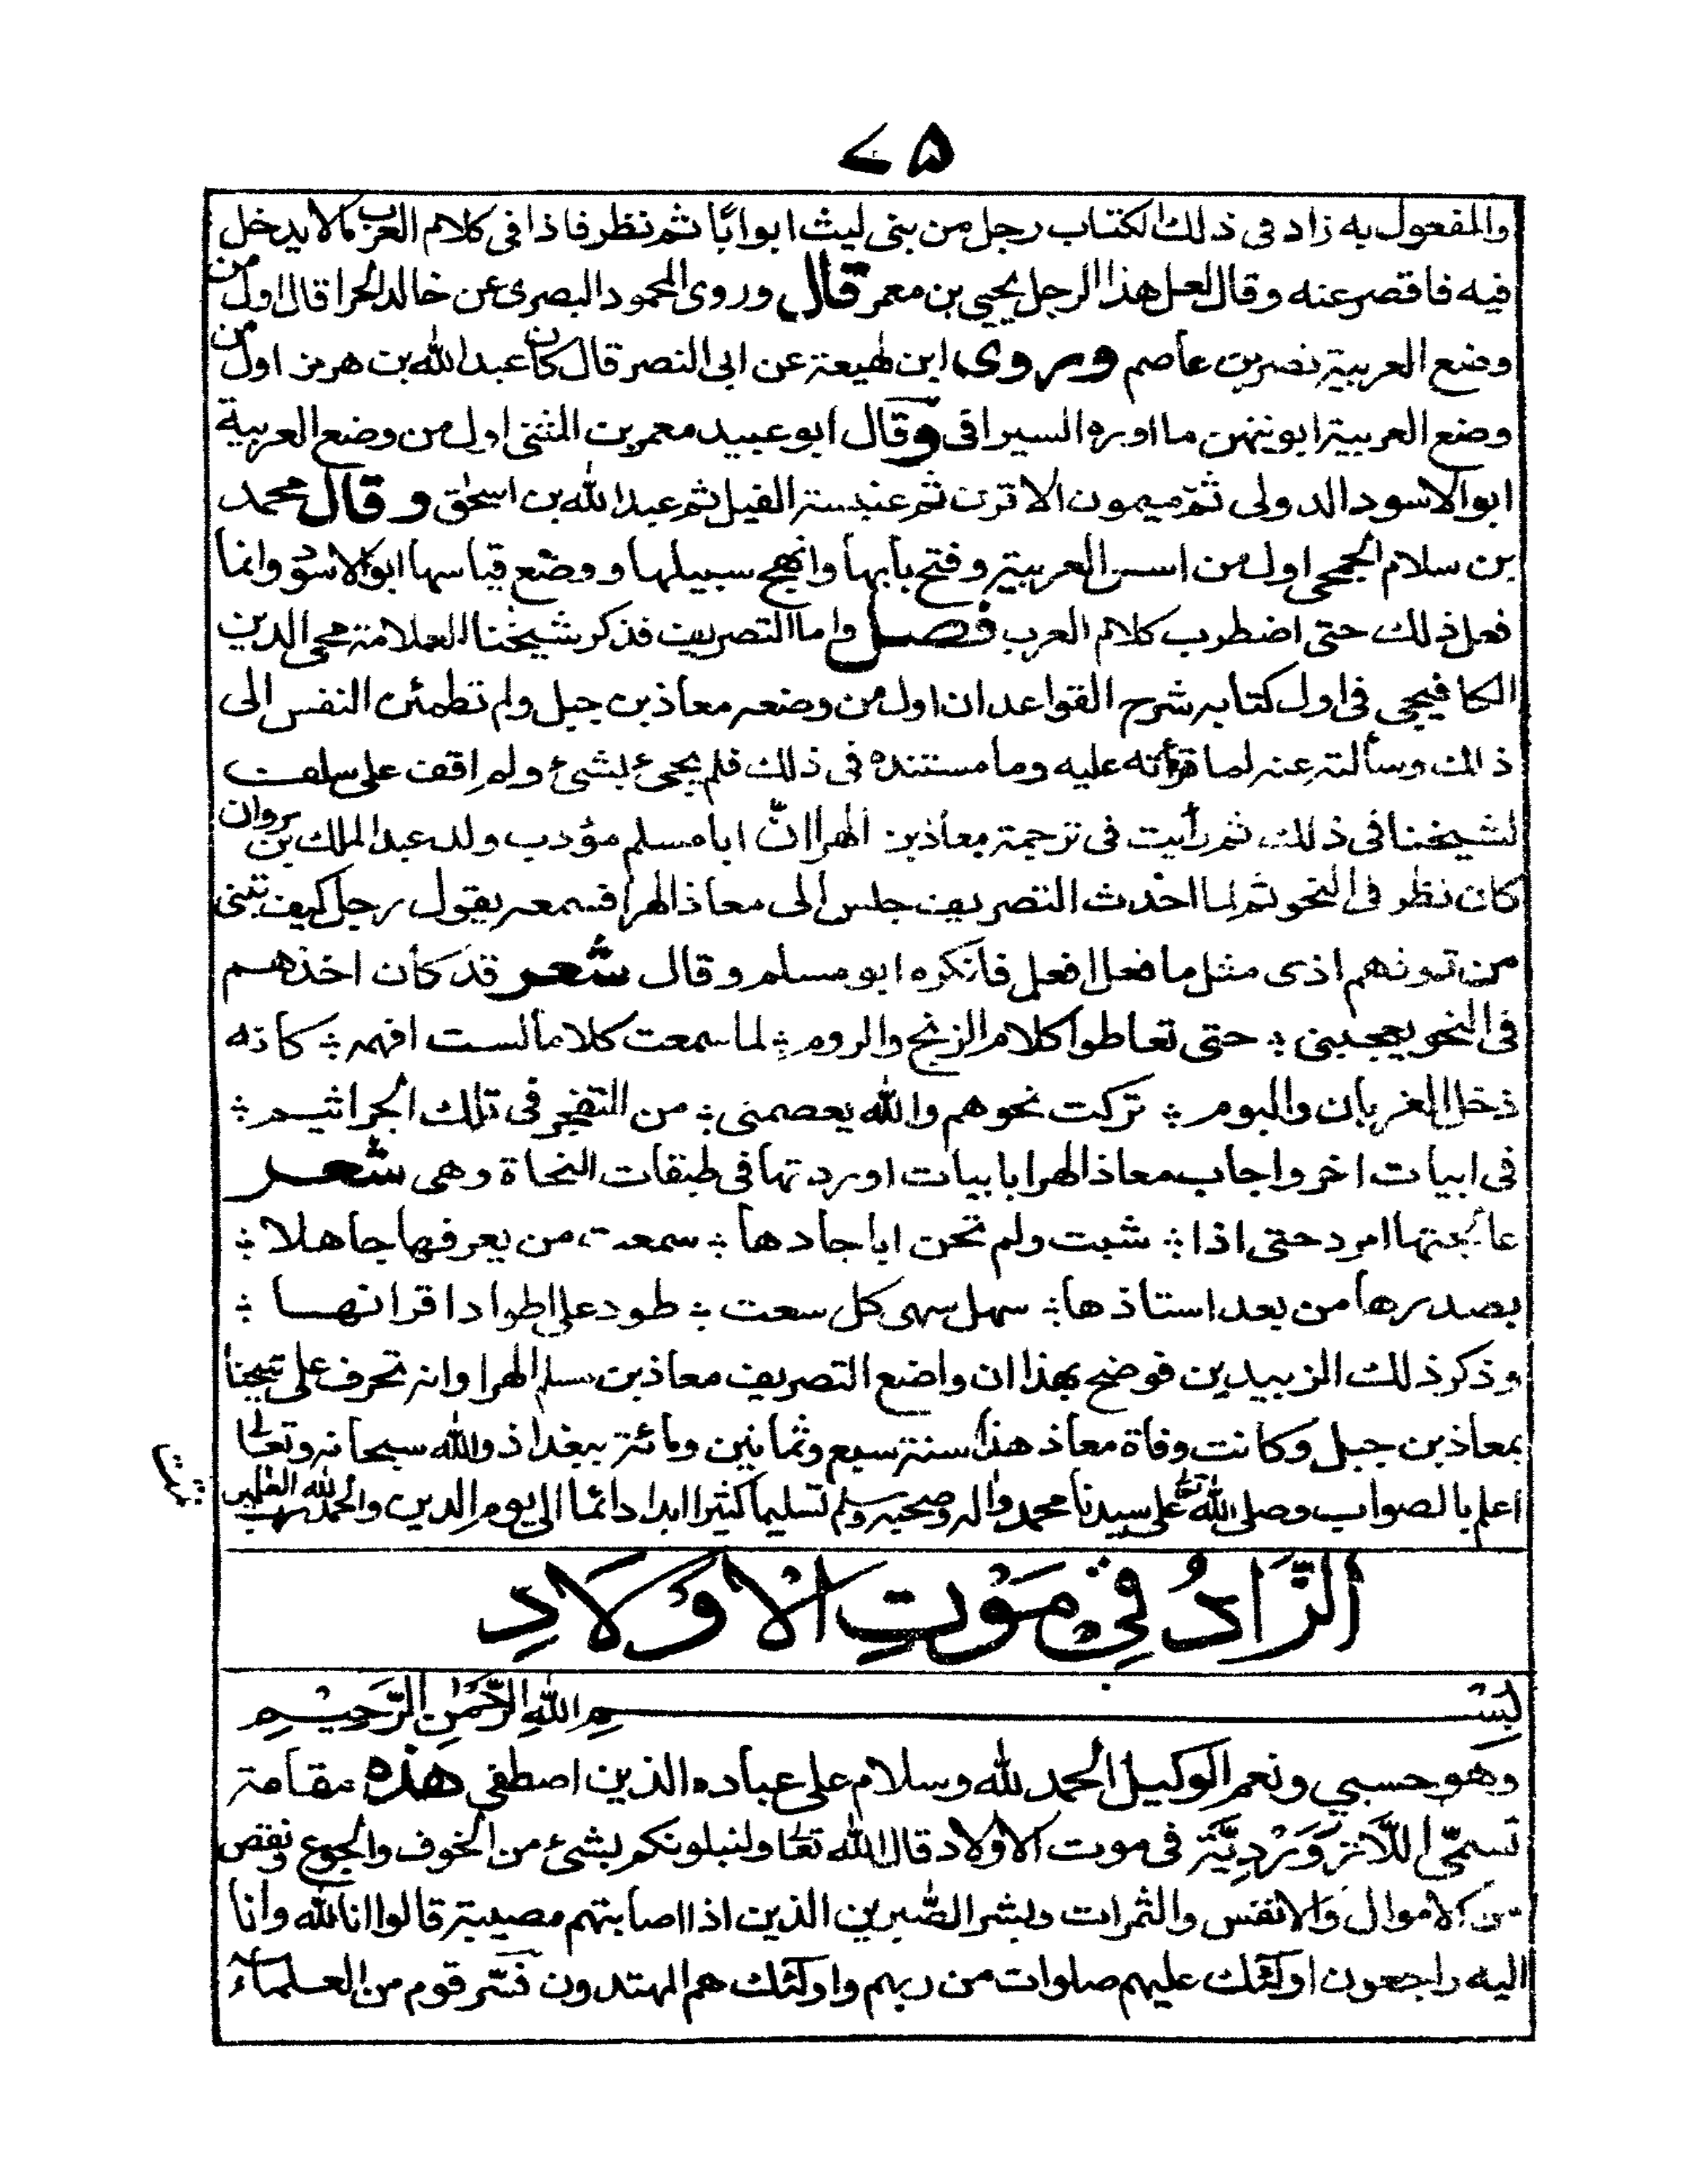 ۵۷
والمفعول به زاد فى ذلك الكتاب رجل من بنى ليث ابوابًا ثم نظر فاذا فى كلام العرب مالا يدخل
فيه فاقصر عنه وقال لعل هذا الرجل يحيى بن معمر قال وروى المحمود البصرى عن خالد الحرا قال اول من
وضع العربية نصر بن عاصم وروى ابن لهيعة عن ابى النصر قال كان عبد الله بن هرمز اول من
وضع العربية ما اوره السيرافى وقال ابو عبيد معمر بن المثنى اول من وضع العربية
ابو الاسود الدولى ثم ميمون الاقرن ثم عنبسة الفيل ثم عبد الله بن اسحٰق وقال محمد
بن سلام الجمحى اول من اسس العربية وفتح بابها وانهج سبيلها ووضع قياسها ابو الاسود وانما
فعل ذلك حتى اضطرب كلام العرب فصل واما التصريف فذكر شيخنا العلامة محى الدين
الكافيجى فى اول كتابه شرح القواعد ان اول من وضعه معاذ بن جبل ولم تطمئن النفس الى
ذالك وسألته عنه لما قرأته عليه وما مستنده فى ذلك فلم يجئ بشئ ولم اقف على سلف
لشيخنا فى ذلك ثم رأيت فى ترجمة معاذ بن الهرا انّ ابا مسلم مؤدب ولد عبد الملك بن مروان
كان نظر فى النحو ثم لما احدث التصريف جلس الى معاذ الهرا فسمعه يقول رجل كيف تبنى
من تونهم اذى مثل ما فعل افعل فانكره ابو مسلم وقال شعر قد كان اخذهم
فى النحو يعجبنى ؞ حتى تعاطوا كلام الزنج والروم ؞ لما سمعت كلاما لست افهمه ؞ كانه
زجل الغربان والبوم ؞ تركت نحوهم والله يعصمنى ؞ من التفجر فى تلك الجراثيم ؞
فى ابيات اخر واجاب معاذ الهرا بابيات اوردتها فى طبقات النحاة وهى شعر
عالجتها امرد حتى اذا ؞ شبت ولم تحن اباجادها ؞ سمعت من يعرفها جاهلا ؞
بصدرها من بعد استاذها ؞ سهل سهى كل سعت ؞ طود على اطواد اقرانها ؞
وذكر ذلك الزبيدين فوضح بهذا ان واضع التصريف معاذ بن مسلم الهرا وانه تحرف على شيخنا
بمعاذ بن جبل وكانت وفاة معاذ هذا سنة سبع وثمانين ومائة ببغداذ والله سبحانه وتعالى
اعلم بالصواب وصلى الله تعالى على سيدنا محمد واله وصحبه وسلم تسليما كثيرا ابدا دائما الى يوم الدين والحمد لله رب العلمين
الزَّادُ فِي مَوْتِ الْاَوْلَادِ
بِسْمِ اللهِ الرَّحْمٰنِ الرَّحِيْمِ
وهو حسبي ونعم الوكيل الحمد لله وسلام على عباده الذين اصطفى هذه مقامة
تسمّى اللَّازَوَرْدِيَّة فى موت الاولاد قال الله تعالى ولنبلونكم بشئ من الخوف والجوع ونقص
من الاموال والانفس والثمرات وبشر الصّبرين الذين اذا اصابتهم مصيبة قالوا انا لله وانا
اليه راجعون اولئك عليهم صلوات من ربهم واولئك هم المهتدون فسّر قوم من العلماء